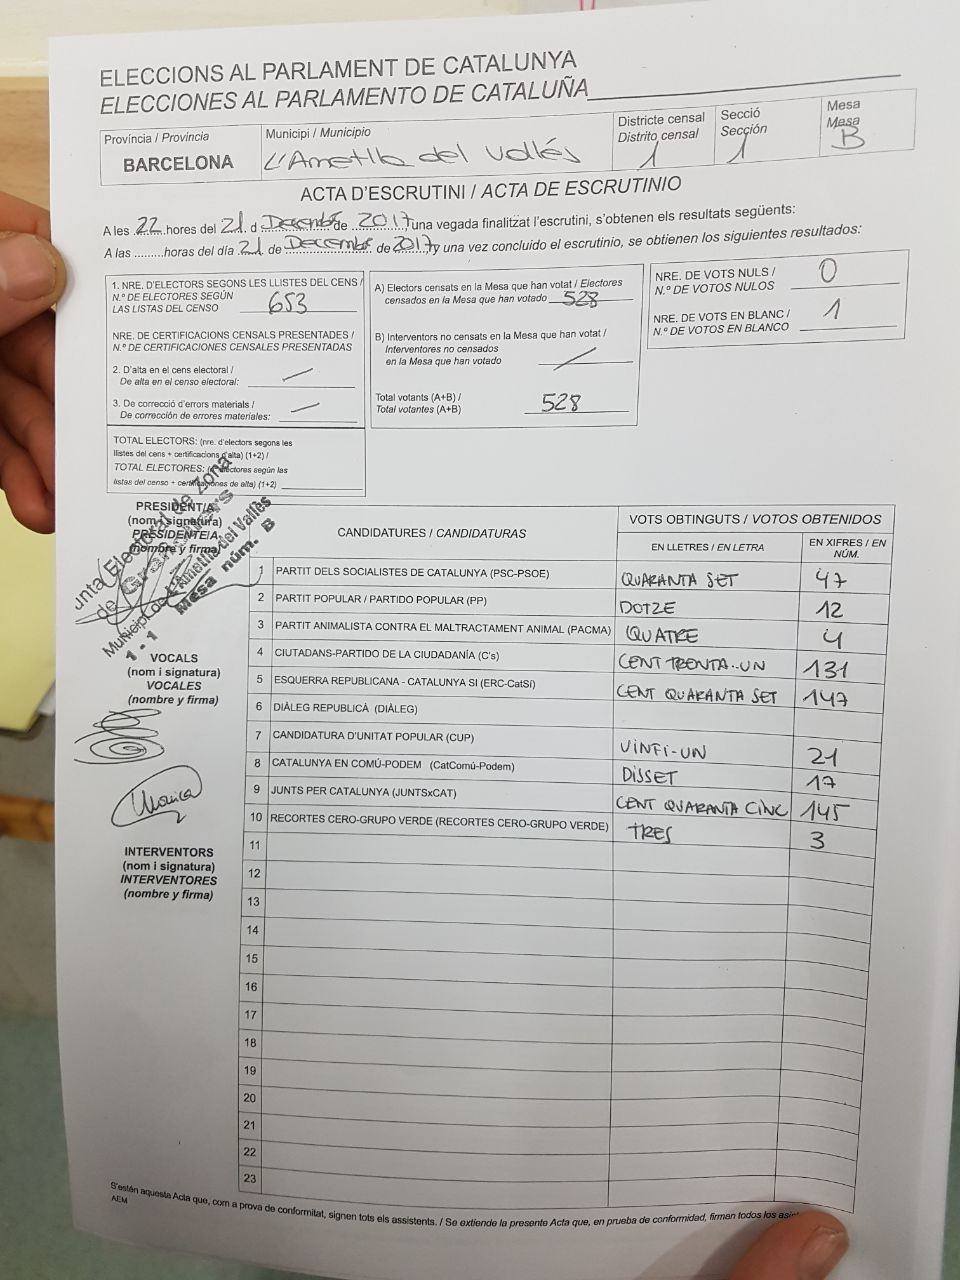 ELECCIONS AL PARLAMENT DE CATALUNYA
ELECCIONES AL PARLAMENTO DE CATALUÑA
Província / Provincia
BARCELONA
Municipi / Municipio
L'Ametlla del Vallés
Districte censal
Distrito censal
1
Secció
Sección
1
Mesa
Mesa
B
ACTA D'ESCRUTINI / ACTA DE ESCRUTINIO
A les 22 hores del 21 d Desembre de 2017, una vegada finalitzat l'escrutini, s'obtenen els resultats següents:
A las .........horas del día 21 de Decembre de 2017 y una vez concluido el escrutinio, se obtienen los siguientes resultados:
1. NRE. D'ELECTORS SEGONS LES LLISTES DEL CENS /
N.º DE ELECTORES SEGÚN
LAS LISTAS DEL CENSO 653
NRE. DE CERTIFICACIONS CENSALS PRESENTADES /
N.º DE CERTIFICACIONES CENSALES PRESENTADAS
2. D'alta en el cens electoral /
De alta en el censo electoral: —
3. De correcció d'errors materials /
De corrección de errores materiales: —
TOTAL ELECTORS: (nre. d'electors segons les
llistes del cens + certificacions d'alta) (1+2) /
TOTAL ELECTORES: (n.º electores según las
listas del censo + certificaciones de alta) (1+2)
A) Electors censats en la Mesa que han votat / Electores
censados en la Mesa que han votado 528
B) Interventors no censats en la Mesa que han votat /
Interventores no censados
en la Mesa que han votado —
Total votants (A+B) /
Total votantes (A+B) 528
NRE. DE VOTS NULS /
N.º DE VOTOS NULOS 0
NRE. DE VOTS EN BLANC /
N.º DE VOTOS EN BLANCO 1
PRESIDENT/A
(nom i signatura)
PRESIDENTE/A
(nombre y firma)
Junta Electoral de Zona
de Granollers
Municipi de L'Ametlla del Vallès
1 - 1 Mesa núm. B
VOCALS
(nom i signatura)
VOCALES
(nombre y firma)
INTERVENTORS
(nom i signatura)
INTERVENTORES
(nombre y firma)
CANDIDATURES / CANDIDATURAS
VOTS OBTINGUTS / VOTOS OBTENIDOS
EN LLETRES / EN LETRA
EN XIFRES / EN NÚM.
1 PARTIT DELS SOCIALISTES DE CATALUNYA (PSC-PSOE) QUARANTA SET 47
2 PARTIT POPULAR / PARTIDO POPULAR (PP) DOTZE 12
3 PARTIT ANIMALISTA CONTRA EL MALTRACTAMENT ANIMAL (PACMA) QUATRE 4
4 CIUTADANS-PARTIDO DE LA CIUDADANÍA (C's) CENT TRENTA-UN 131
5 ESQUERRA REPUBLICANA - CATALUNYA SI (ERC-CatSí) CENT QUARANTA SET 147
6 DIÀLEG REPUBLICÀ (DIÀLEG)
7 CANDIDATURA D'UNITAT POPULAR (CUP) VINTI-UN 21
8 CATALUNYA EN COMÚ-PODEM (CatComú-Podem) DISSET 17
9 JUNTS PER CATALUNYA (JUNTSxCAT) CENT QUARANTA CINC 145
10 RECORTES CERO-GRUPO VERDE (RECORTES CERO-GRUPO VERDE) TRES 3
11
12
13
14
15
16
17
18
19
20
21
22
23
S'estén aquesta Acta que, com a prova de conformitat, signen tots els assistents. / Se extiende la presente Acta que, en prueba de conformidad, firman todos los
AEM